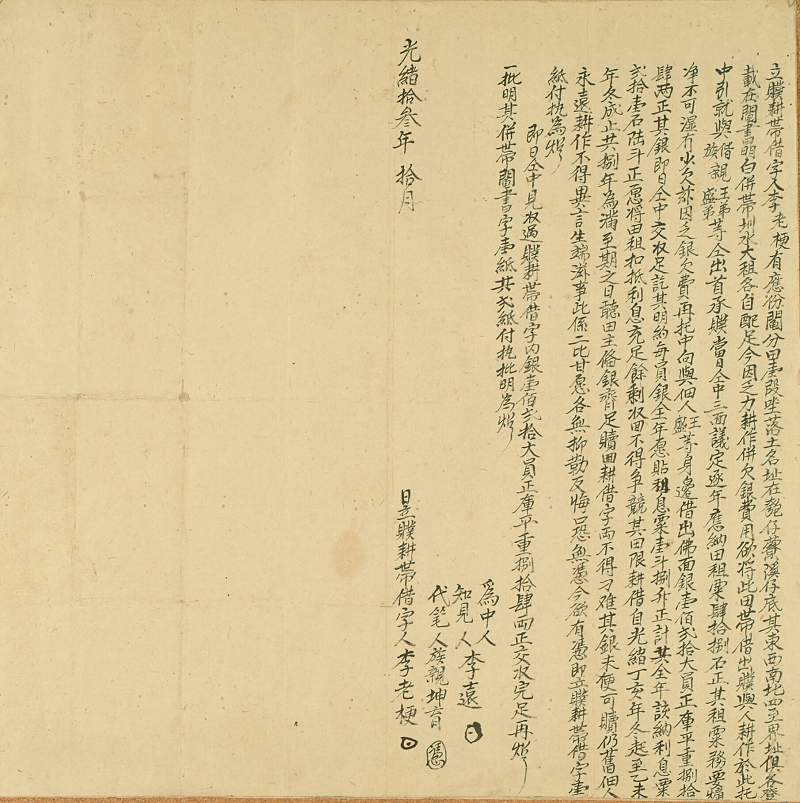 立贌耕帶借字人李老梗有應份鬮分田壹段坐落土名址在匏仔藔溪仔底其東西南北四至界址俱各登
載在鬮書明白併帶圳水大租各自配足今因乏力耕作併欠銀費用欲將此田帶借出贌與人耕作於此托
中引就與族親王弟盛弟等仝出首承贌當日仝中三面議定逐年應納田租粟肆拾捌石正其租粟務要燥
净不可濕冇少欠玆因乏銀欠費再托中向與佃人王盛等身邊借出佛面銀壹佰弍拾大員正庫平重捌拾
肆两正其銀即日仝中交收足訖其明約每員銀全年愿貼租息粟壹斗捌升正計共全年該納利息粟
弍拾壹石陸斗正愿將田租扣抵利息充足餘剩收回不得争競其田限耕借自光緒丁亥年冬起至乙未
年冬成止共捌年為滿至期之日聽田主俻銀齊足贖回耕借字两不得刁难其銀未便可贖仍舊佃人
永遠耕作不得異言生端滋事此係二比甘愿各無抑勒反悔口恐無憑今欲有憑即立贌耕帶借字壹
紙付执為炤
即日仝中見收過贌耕帶借字內銀壹佰弍拾大員正庫平重捌拾肆両正交收完足再炤
一批明其併帶鬮書字壹紙共弍紙付执批明為炤
為中人
知見人李遠
代笔人族親坤育
光緒拾叁年 拾月 日立贌耕帶借字人李老梗